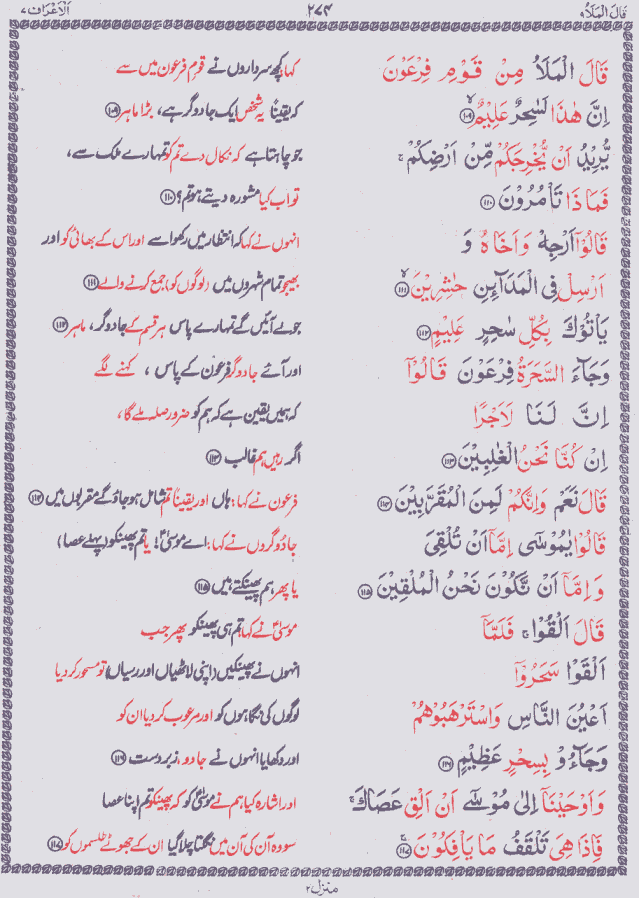 قَالَ الْمَلَاُ ٩ ٢٧٤ اَلْاَعْرَاف ٧
قَالَ الْمَلَاُ مِنْ قَوْمِ فِرْعَوْنَ کہا کچھ سرداروں نے قومِ فرعون میں سے
اِنَّ هٰذَا لَسٰحِرٌ عَلِيْمٌ ۙ﴿۱۰۹﴾ کہ یقیناً یہ شخص ایک جادوگر ہے، بڑا ماہر ﴿۱۰۹﴾
يُّرِيْدُ اَنْ يُّخْرِجَكُمْ مِّنْ اَرْضِكُمْ ۚ جو چاہتا ہے کہ نکال دے تم کو تمہارے ملک سے،
فَمَاذَا تَاْمُرُوْنَ ﴿۱۱۰﴾ تو اب کیا مشورہ دیتے ہو تم؟ ﴿۱۱۰﴾
قَالُوْۤا اَرْجِهْ وَاَخَاهُ وَ انہوں نے کہا کہ انتظار میں رکھو اسے اور اس کے بھائی کو اور
اَرْسِلْ فِى الْمَدَآئِنِ حٰشِرِيْنَ ۙ﴿۱۱۱﴾ بھیجو تمام شہروں میں (لوگوں کو) جمع کرنے والے ﴿۱۱۱﴾
يَاْتُوْكَ بِكُلِّ سٰحِرٍ عَلِيْمٍ ﴿۱۱۲﴾ جو لے آئیں گے تمہارے پاس ہر قسم کے جادوگر، ماہر ﴿۱۱۲﴾
وَجَآءَ السَّحَرَةُ فِرْعَوْنَ قَالُوْۤا اور آئے جادوگر فرعون کے پاس، کہنے لگے
اِنَّ لَنَا لَاَجْرًا کہ ہمیں یقین ہے کہ ہم کو ضرور صلہ ملے گا،
اِنْ كُنَّا نَحْنُ الْغٰلِبِيْنَ ﴿۱۱۳﴾ اگر رہیں ہم غالب ﴿۱۱۳﴾
قَالَ نَعَمْ وَاِنَّكُمْ لَمِنَ الْمُقَرَّبِيْنَ ﴿۱۱۴﴾ فرعون نے کہا: ہاں اور یقیناً تم شامل ہو جاؤ گے مقربوں میں ﴿۱۱۴﴾
قَالُوْا يٰمُوْسٰٓى اِمَّاۤ اَنْ تُلْقِىَ جادوگروں نے کہا: اے موسیٰؑ! یا تم پھینکو (پہلے عصا)
وَاِمَّاۤ اَنْ نَّكُوْنَ نَحْنُ الْمُلْقِيْنَ ﴿۱۱۵﴾ یا پھر ہم پھینکتے ہیں ﴿۱۱۵﴾
قَالَ اَلْقُوْا ۚ فَلَمَّاۤ موسیٰؑ نے کہا تم ہی پھینکو پھر جب
اَلْقَوْا سَحَرُوْۤا انہوں نے پھینکیں (اپنی لاٹھیاں اور رسیاں) تو مسحور کر دیا
اَعْيُنَ النَّاسِ وَاسْتَرْهَبُوْهُمْ لوگوں کی نگاہوں کو اور مرعوب کر دیا ان کو
وَجَآءُوْ بِسِحْرٍ عَظِيْمٍ ﴿۱۱۶﴾ اور دکھایا انہوں نے جادو، زبردست ﴿۱۱۶﴾
وَاَوْحَيْنَاۤ اِلٰى مُوْسٰٓى اَنْ اَلْقِ عَصَاكَ ۚ اور اشارہ کیا ہم نے موسیٰؑ کو کہ پھینکو تم اپنا عصا
فَاِذَا هِىَ تَلْقَفُ مَا يَاْفِكُوْنَ ۚ﴿۱۱۷﴾ سو وہ آن کی آن میں نگلتا چلا گیا ان کے جھوٹے طلسموں کو ﴿۱۱۷﴾
منزل ٢